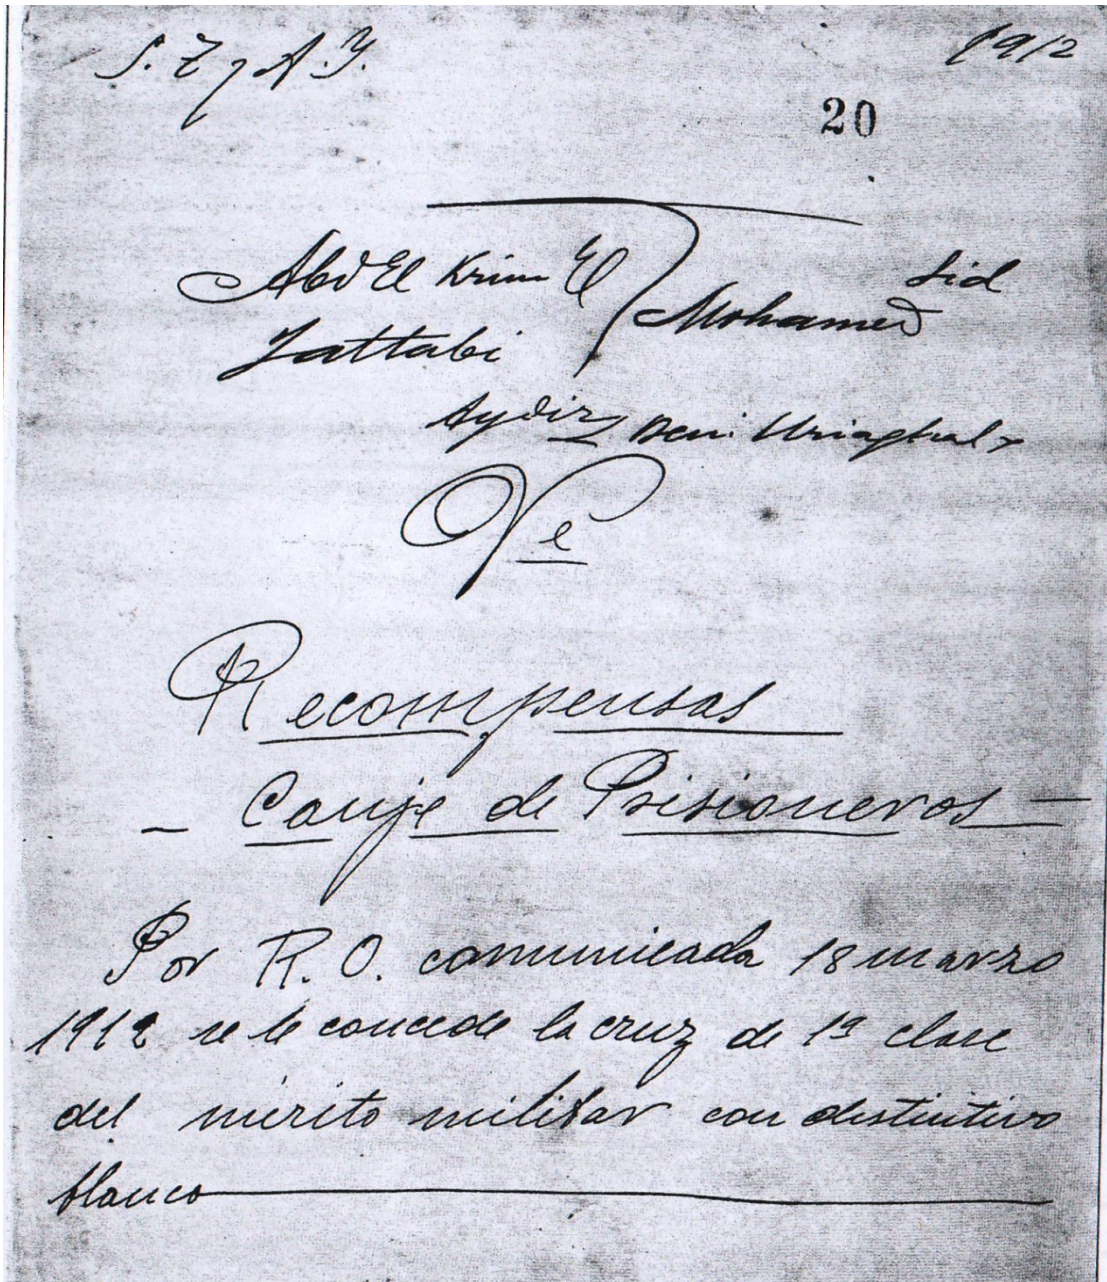 S. Z y A. Y.
1912
20
Abd El Krim El
Jattabi
Sid
Mohamed
Aydir Beni Uriaghel
Recompensas
- Canje de Prisioneros -
Por R. O. comunicada 18 marzo
1912 se le concede la cruz de 1ª clase
del mérito militar con distintivo
blanco